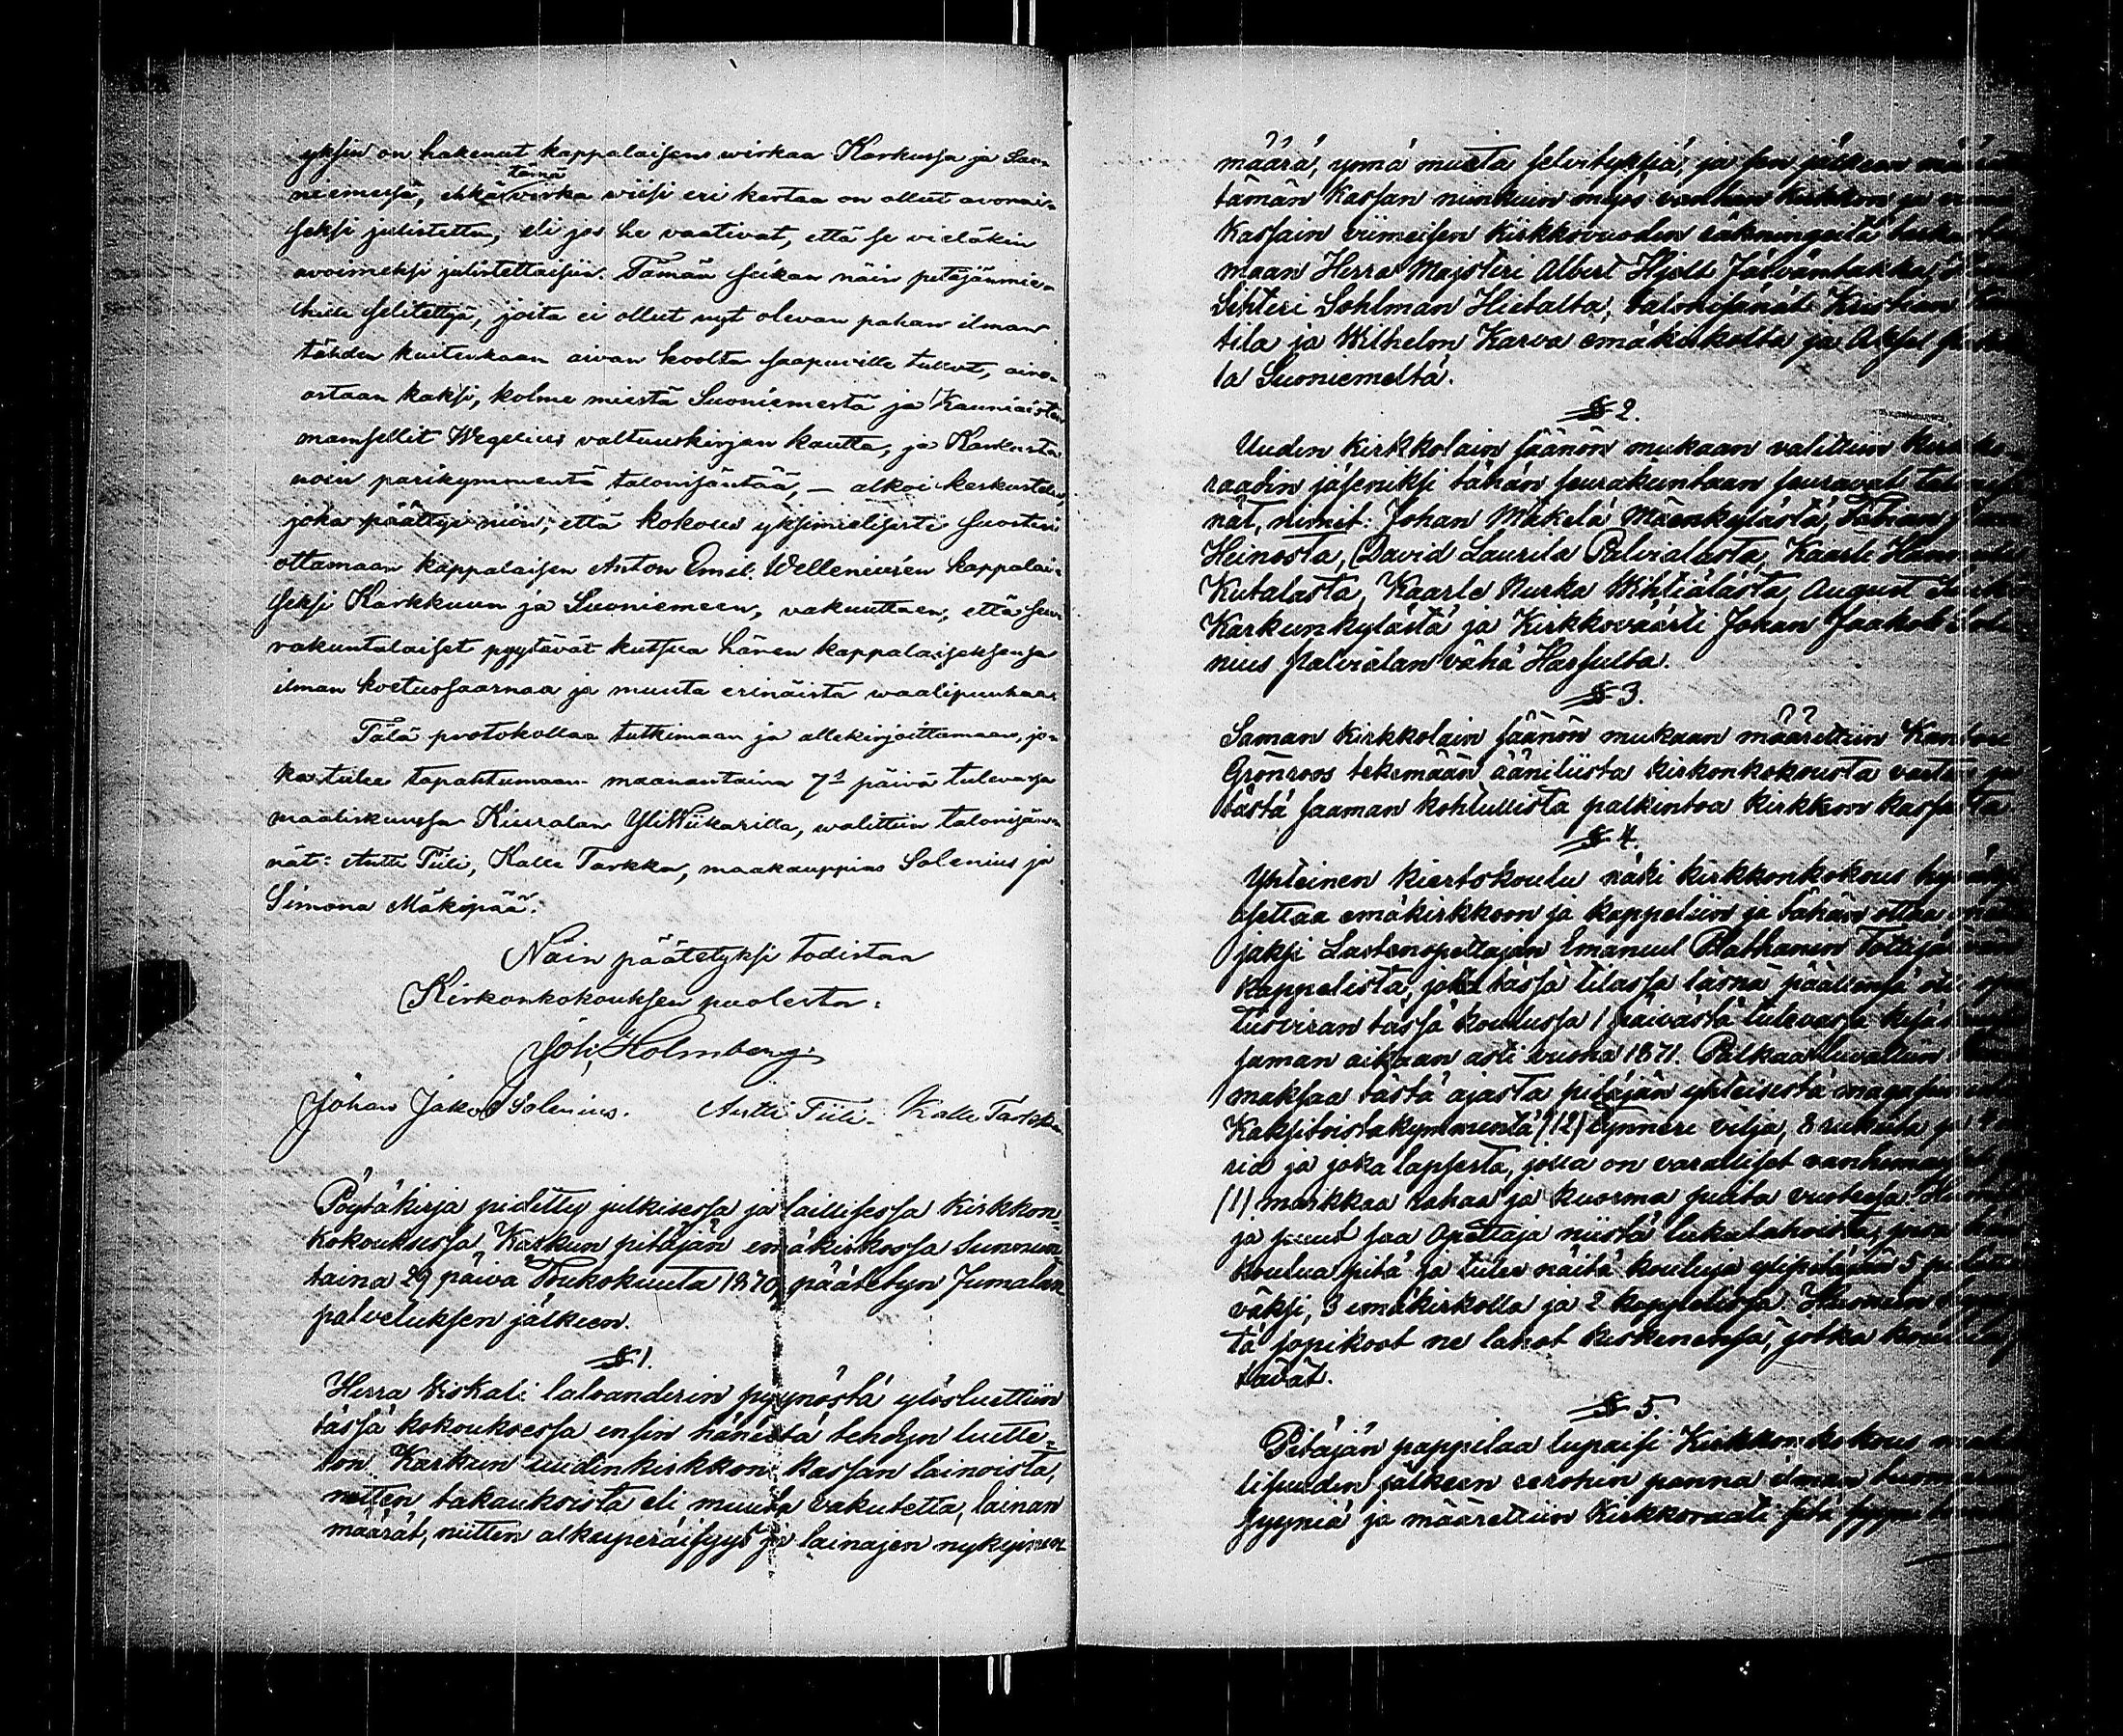 yksin on hakenut kappalaisen wirkaa Karkussa ja Suo-
niemessä, ehkä tämä virka wiisi eri kertaa on ollut avonai-
seksi julistettu, eli jos he vaativat, että se vieläkin
avoimeksi julistettaisiin. Tämän seikan näin pitäjänmie-
hille selitettyä, joita ei ollut nyt olevan pahan ilman
tähden kuitenkaan aivan koolta saapuville tullut, aino-
astaan kaksi, kolme miestä Suoniemestä ja Kauniaisten
mamsellit Wegelius valtuuskirjan kautta, ja Karkusta
noin parikymmentä talonisäntää, — alkoi keskustelu,
joka päättyi niin, että kokous yksimielisesti suostui
ottamaan kappalaisen Anton Emel. Welleniusen kappalai-
seksi Karkkuun ja Suoniemeen, vakuuttaen, että seu-
rakuntalaiset pyytävät kutsua hänen kappalaiseksensa
ilman koetussaarnaa ja muuta erinäistä waalipuuhaa.
Tätä protokollaa tutkimaan ja allekirjoittamaan, jo-
ka tulee tapahtumaan maanantaina 7s päivä tulevassa
maaliskuussa Kiuralan YliWiikarilla, walittiin talonisän-
nät: Antti Tiili, Kalle Tarkka, maakauppias Solenius ja
Simona Mäkipää.
Näin päätetyksi todistaa
Kirkonkokouksen puolesta:
Joh, Holmberg
Johan Jakob Solenius. Antti Tiili. Kalle Tarkka
Pöytäkirja pidetty julkisessa ja laillisessa kirkkon-
kokouksessa Karkun pitäjän emäkirkossa Sunnun
taina 29 päivä Toukokuuta 1870, päätetyn Jumalan
palveluksen jälkeen.
§ 1.
Herra Wiskali Lalvanderin pyynöstä ylösluettiin
tässä kokouksessa ensin hänestä tehdyn luette-
lon Karkun uudinkirkkon kassan lainoista,
nitten takauksista eli muuta vakutetta, lainan
määrät, niitten alkuperäisyys ja lainajen nykyinen
määrä, ynnä muita selvityksiä, ja sen jälkeen
tämän kassan niinkuin myös vanhan kirkkon ja
Kassain viimeisen kirkkovuoden räkningeitä
maan Herra Majsteri Albert Hjelt Järventakka,
Sihteri Sohlman Hiutalta, talonisänät Kristian
tila ja Wilhelm Karva emäkirkolta ja Aksel
la Suoniemeltä.
§ 2.
Uuden kirkkolain säänön mukaan valittiin kirkko
raadin jäseniksi tähän seurakuntaan seuravat
nät, nimit: Johan Mäkelä Mäenkylästä, Johan
Heinosta, David Laurila Palvialasta, Kaarle
Kutalasta, Kaarle Nurka Wihtiälästä, August
Karkunkylästä ja Kirkkoväärti Johan Jaakob Sole
nius Palvialan vähä Hassulta.
§ 3.
Saman kirkkolain säänön mukaan määrättiin
Grönroos tekemään äänilista kirkonkokousta varten ja
tästä saaman kohtullista palkintoa kirkkon kassasta
§ 4.
Yhteinen kiertokoulu näki kirkkonkokous
asettaa emäkirkkoon ja kappeliin ja tähän ottaa
jaksi Lastenopettajan Emanuel Rathanin
kappelista, joka tässä tilassa läsnä päällensä
tusviran tässä koulussa 1 päivästä tulevassa
saman aikaan asti vuona 1871. Palkaa luvattiin
maksaa tästä ajasta pitäjän yhteisestä
Kaksitoistakymmentä (12) tynnere vilja, 8
ria ja joka lapsesta, jolla on varalliset vanhemat
(1) markkaa rahaa ja kuorma puita vuotessa.
ja puut saa Opettaja niistä lukutahoista, jossa
koulua pitä ja tulee näitä kouluja ylipitäjän 5
väksi, 3 emäkirkolla ja 2 kappelissa. Huoneen
tä sopikoot ne lahot keskenensä, jotka
tävät.
§ 5.
Pitäjän pappilaa lupaisi Kirkkonkokous
lisuuden jälkeen rerohun panna ilman
syyniä ja määrättiin Kirkkoraati sitä